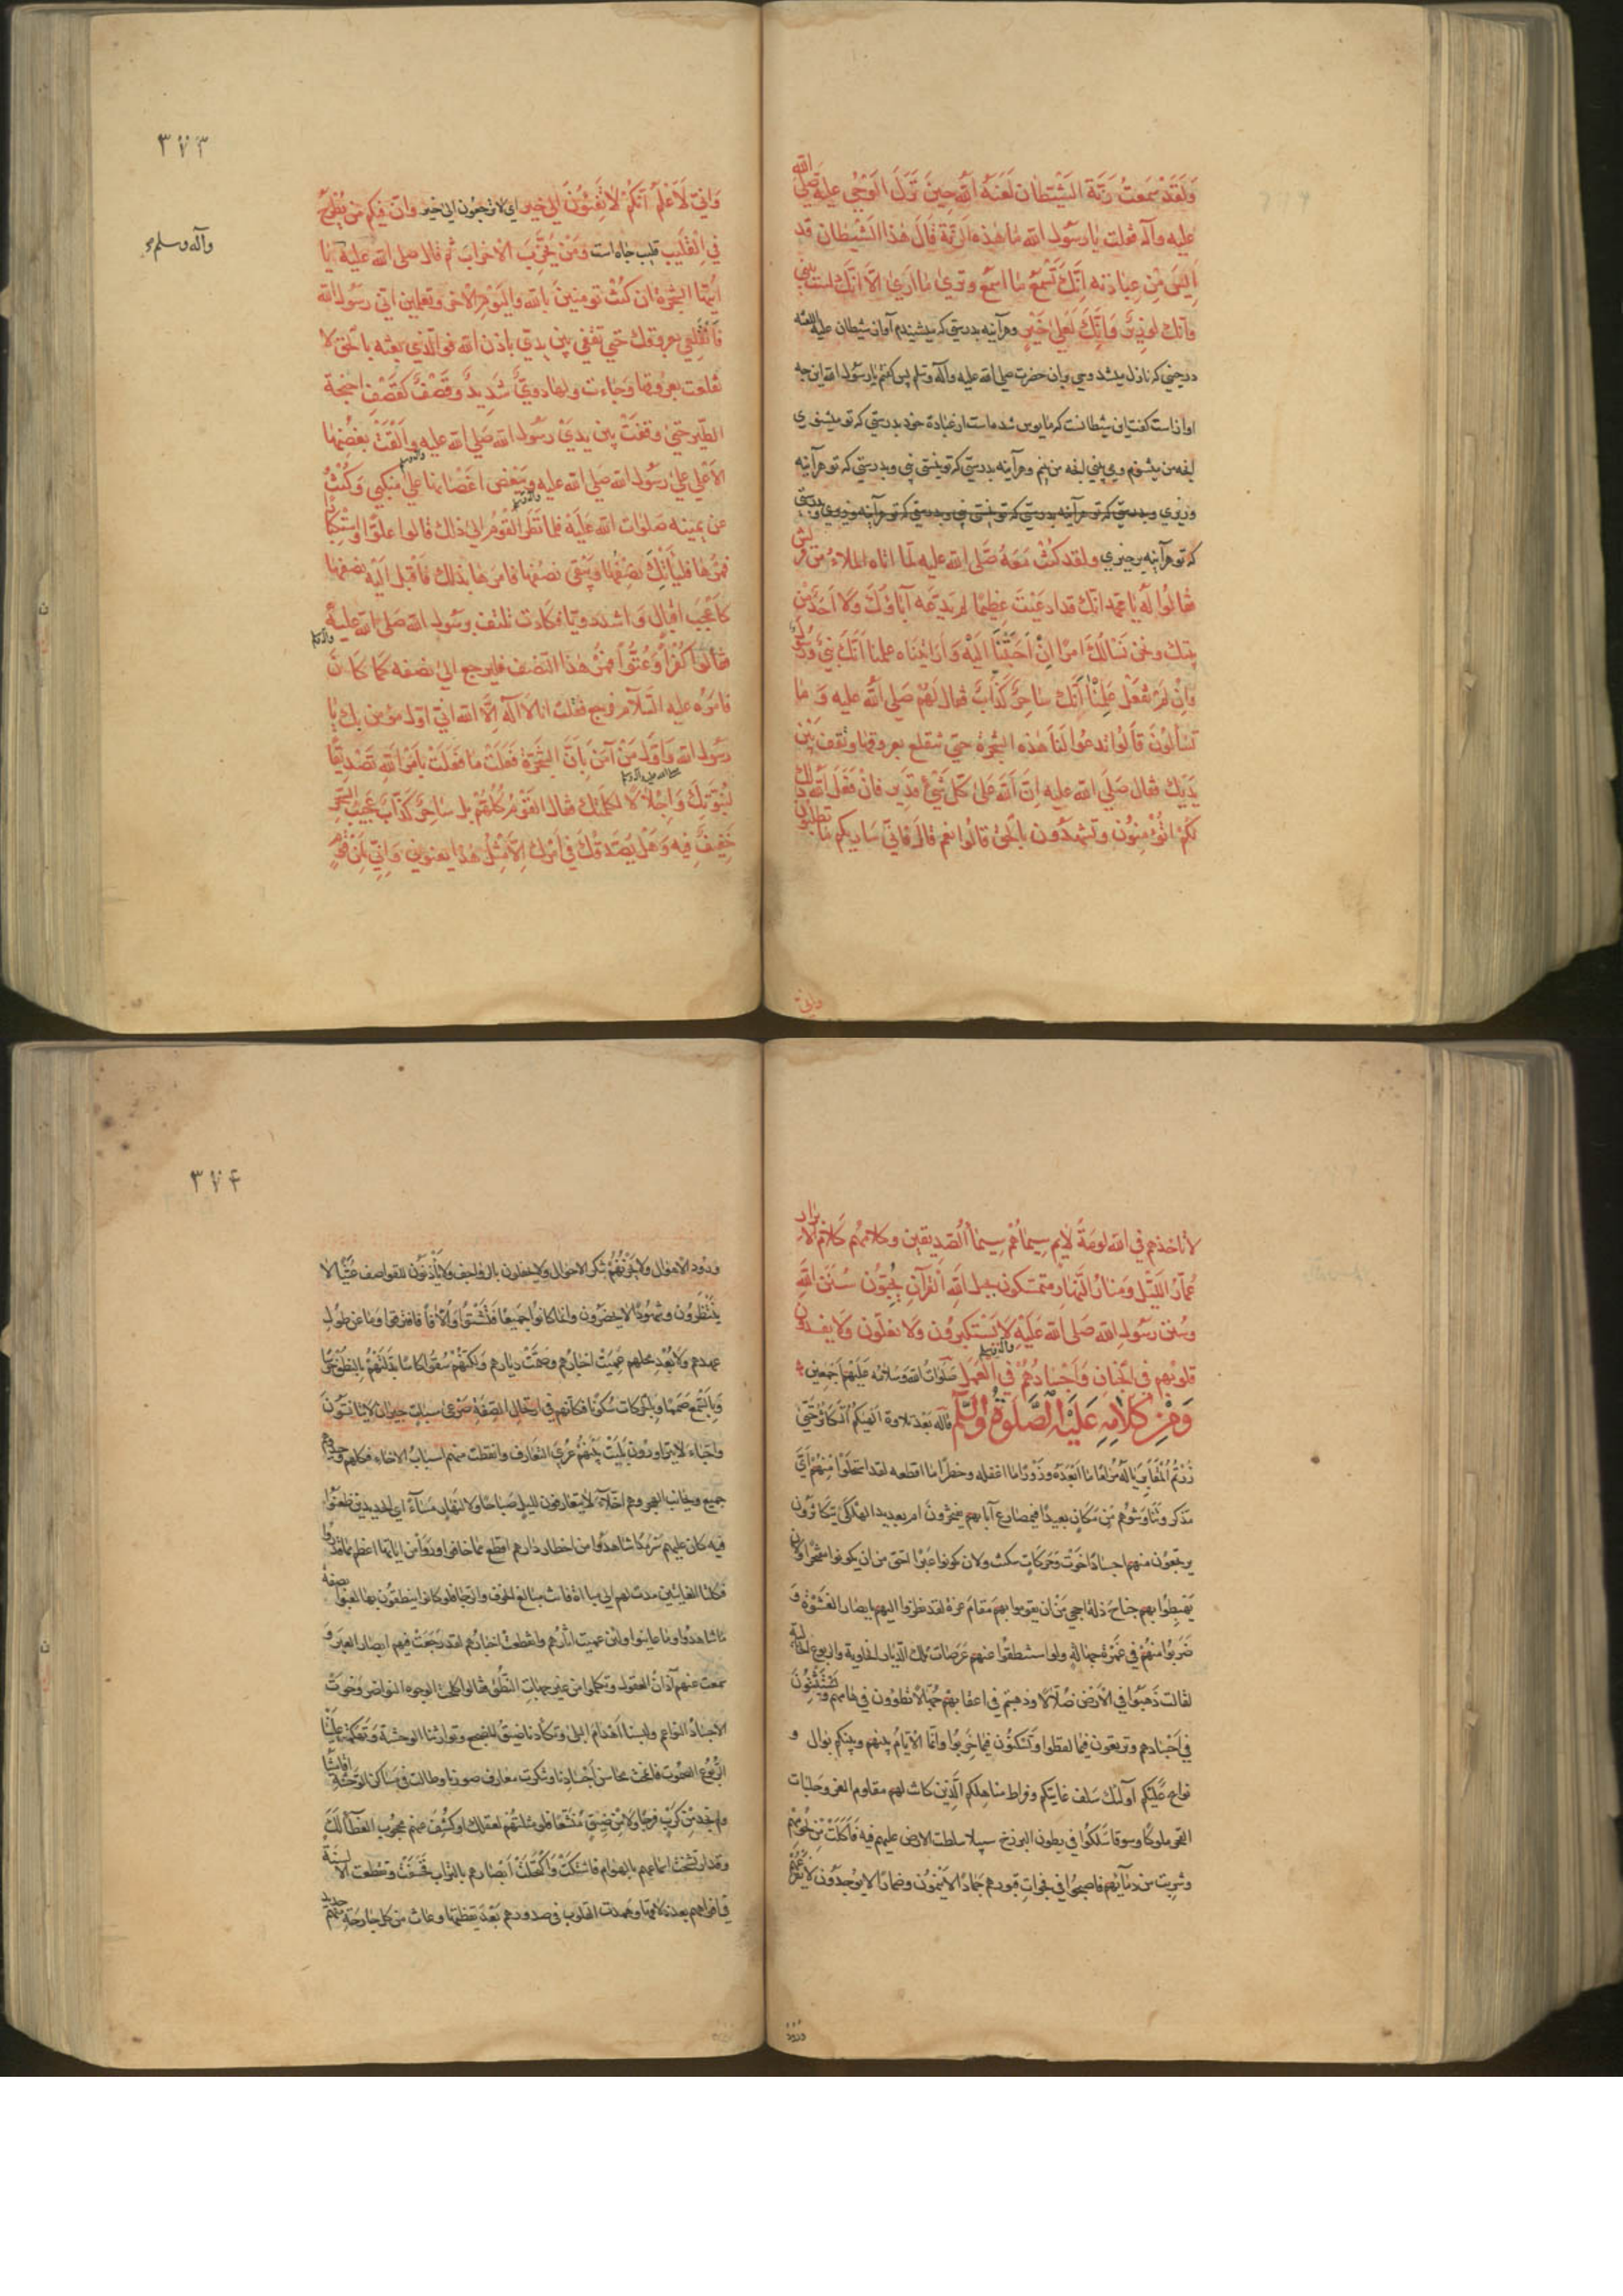 وَلَقَدْ سَمِعتُ رَنَّةَ الشَّيْطانِ لَعَنَهُ اللهُ حِينَ نَزَلَ الوَحْيُ عليه صلّى الله
عليه وآله فقلت يا رسُولَ الله ما هذه الرنّة قالَ هذا الشّيطان قد
اَيِسَ مِن عِبادته اِنَّكَ تَسْمَعُ ما اسْمَعُ وترى ما اَرى الّا انّكَ لست بنبي
وانك لوزيرٌ وَاِنَّكَ لَعَلى خَيْرٍ وهرآینه بدرستی که میشنیدم آواز شیطان علیه اللعنه
در حینی که نازل میشد وحی بران حضرت صلی الله علیه وآله وسلم پس گفتم یا رسول الله این چه
اواز است گفت این شیطانست که مایوس شده است از عبادة خود بدرستی که تو میشنوی
انچه من میشنوم و می بینی انچه من بینم وهرآینه بدرستی که تو نیستی نبی وبدرستی که تو هرآینه
وزیری وبدرستی که تو هرآینه بدرستی که تو نیستی نبی وبدرستی که تو هرآینه وزیری وبدرستی
که تو هرآینه بر خیری ولقد كُنْتُ مَعَهُ صَلّى الله عليه لمّا اتاه الملاءُ من قريش
فقالُوا لَهُ يا محمد انّك قد ادعَيْتَ عظيمًا لم يَدّعه آباؤكَ وَلا اَحَدٌ مِن
بيتك ونحن نَسْألُكَ امرًا اِنْ اَجَبْتَنا اليْه وَاَرَيْتَناه علمنا اَنَّكَ نبيٌّ ورسُولٌ
وانْ لم تَفْعَل عَلِمْنا اَنّك ساحِرٌ كَذّابٌ فقال لهُم صَلى اللهُ عليه وَما
تسألونَ قالُوا تدعوا لَنا هذه الشجرة حتى تنقلع بعروقها وتقف بَيْن
يَدَيك فقال صَلّى الله عليه اِنّ اللهَ عَلى كُلّ شَيْءٍ قدير فانْ فَعَلَ اللهُ ذلك
لكم اتُؤمِنوُن وتشهدُون بالحق قالُوا نعم قال فانّي ساريكم ما تطلبون
وانى
٣٧٣
وَانِّي لَاَعْلَمُ اَنّكُمْ لا تَفِيْئُونَ الى خير ای لا ترجعون الی خیر وانّ فيكم من يُطْرَحُ
في القَلِيبِ قلیب چاه است ومَنْ يُحَزِّبُ الاحزابَ ثم قال صلى الله عليه يا
وآله وسلم
ايتها الشجرة ان كنتِ تومنينَ بالله واليَوْمِ الاخر وتعلمين اني رسُولُ الله
فَانْقَلِعي بعروقك حتى تقفي بين يديّ باذن الله فو الّذي بعثه بالحق لا
نقلعت بعروقها وَجاءت ولها دويٌّ شَدِيدٌ وقَصْفٌ كقَصْفِ اجنحة
الطّير حتى وقفتْ بين يدَيْ رسُول الله صَلى الله عليه واَلقَتْ بغُصْنِها
الاعْلى على رَسُول الله صَلى الله عليه وببَعْض اغصانها على منكبي وَكُنْتُ
عن يمينه صَلوات الله عَلَيْه فلما نَظَرَ القوْمُ الى ذلك قالوا علوّا واسْتِكبارًا
فمُرْها فليأتِكَ نِصْفُها ويَبْقى نصفُها فامرها بذلك فاقبل اليه نصفها
كاَعْجَبِ اقبالٍ وَاشَدّه دويّا فكادت تلتف برسُول الله صَلى الله عليه
فقالوا كُفراً وَعُتُوّاً فمُرْ هذا النّصف فليرجع الى نصفه كما كانَ
فامرهُ عليه السّلام فرجع فقلتُ انا لا اله اِلّا الله اني اول مؤمن بك يا
رسول الله وَاَوّلُ مَنْ آمَنَ بِاَنَّ الشجَرَةَ فَعَلَتْ ما فَعَلَتْ بِاَمْرِ اللهِ تَصْدِيقًا
لنُبُوّتِكَ وَاِجْلالًا لكلمتك فقال القَوْمُ كلّهُمْ بل ساحِرٌ كذّابٌ عَجِيبُ السِّحر
خَفِيفٌ فيه وَهَلْ يُصَدّقكَ في اَمْرِك اِلّا مِثْلُ هذا يعنوني وَاِنّي لَمِن قَوْمٍ
لا تاخذهم في الله لومَةُ لايم سيماهُم سيما الصّديقين وكلامهم كلامُ الابرار
عُمّارُ اللّيْل وَمنارُ النّهار متمسّكون بحبل اللهِ القرآنِ يُحيُون سُنَنَ اللهِ
وسُنن رسُولِ الله صَلى الله عَلَيْهِ لا يَسْتكبرون وَلا يعلُون وَلا يفسدون
قلُوبُهم فى الجنان وَاَجسادُهُم في العَمَل صَلَواتُ اللهِ وَسَلامُه عَلَيْهم اَجمَعين
وَمِنْ كَلامِهِ عَلَيْهِ الصَّلوةُ والسَّلَم قاله بَعْد تلاوة الهيكم التَّكاثُر حَتّى
زُرْتُمُ المَقابِر يا لَهُ مَرامًا ما اَبْعَدَهُ وَزَوْرًا ما اغفله وخطرًا ما افظعه لقد استَخلَوْا مِنْهُمْ اَيَّ
مدّكر وتناوَشُوهُم مِن مكانٍ بعيد افبمَصارع آبائهم يفخرونَ ام بعديد الهلكى يتكاثرون
يرتجعُون منهم اجسادًا خَوَتْ وحَرَكاتٍ سكنتْ ولان كونوا عِبَرًا احقّ من ان يكونوا مفتخرا ولان
يَهْبِطُوا بهم جناحَ ذلة احجى مِنْ ان يقوموا بهم مَقامَ عزة لقد نظروا اليهم بابصار العَشْوَة و
ضَرَبُوا منهُمْ في غَمْرة جهالةٍ ولو استنطقُوا عنهم عَرَصات تلك الدّيار الخاوية والربوع الخالية
لقالت ذَهبُوا في الاَرضِ ضُلّالًا وذهبتم في اعقابهم جُهّالًا تطؤون في هامهم وتستنبتون
في اَجْسادهم وترتعون فيما لفظوا وتَسكنُون فيما خَرّبُوا وانّما الايّامُ بينهم وبينكم بَوالٍ و
نوايح عَلَيْكم اولئك سَلف غايتكم وفُرّاط مناهِلكم الّذِين كانت لهم مقاوم العز وحلبات
الفخر ملوكًا وسوقًا سَلكُوا في بطون البرزخ سبيلا سلطت الارض عليهم فيه فاَكلَتْ مِن لحُومهم
وشربت من دمآئهم فاصبحُوا فى فجواتِ قبورهم جَمادًا لا يَنْمُون وضمارًا لا يوجَدُون لا يُفْزِعُهُم
ورود
٣٧٤
ورُودُ الاهوال ولا يَحْزُنُهُم تنكّر الاحوال ولا يحفلون بالرواجف ولا يَأذَنُون للقواصف غُيَّبًا لا
يُنْتَظَرُون وشهُودًا لا يحضرُون وانما كانوُا جَمِيعًا فتَشَتَّتوُا واُلّافًا فافترقوا وَما عن طولِ
عهدهم ولا بُعْدِ محلهم عَمِيَتْ اخبارُهم وصَمَّتْ ديارهم ولكنّهُمْ سُقُوا كاسًا بَدَّلَتْهُمْ بالنطق خرسًا
وَبِالسّمع صَممًا وبالحركات سُكُونًا فكانّهم في ارتجال الصّفة صَرْعى سبات جيرانٌ لا يتانسُونَ
واحبّاء لا يتزاورُون بَلِيَتْ بَيْنهُمْ عُرَى التعارف وانقطعت منهم اسبابُ الاخاء فكلهم وحيد وهم
جميع وبجانب الهجر وهم اخلّآء لا يتعارفون لليلٍ صَباحًا ولا لنَهارٍ مَسآءً اي الجديدين ظعنُوا
فيه كان عليهم سَرْمَدًا شاهدُوا من اخطار دارهم افظع مما خافوا وراَوْا من اياتها اعظم مما قدّروا
فكلتا الغايتين مدت لهم الى مباءة فاتت مبالغ الخوف والرجاء فلو كانوا ينطقُون بها لعيّوا بصفة
ما شاهدُوا وما عاينوا ولئن عميت اثارُهم وانقطعت اخبارُهم لقد رَجَعَتْ فيهم ابصار العِبَر وَ
سمعت عنهم آذانُ العقول وتكلموا من غير جهات النُّطق فقالوا كلحتْ الوجوه النواضر وخَوت
الاجسادُ النواعم ولبسنا اهْدامَ البلى وتكاءدنا ضِيقُ المضجع وتوارثنا الوحشة وَتهَكَّمَتْ علينا
الرّبُوع الصّمُوت فانمحت محاسن اَجسادِنا وتنكرت معارف صورنا وطالت فى مساكن الوَحْشة اقامتُنا
ولم نجد مِنْ كَرْبٍ فرجًا ولا مِنْ ضِيقٍ مُتَّسَعًا فلو مثلتَهُمْ بعقلك او كُشِف عنهم محجوب الغطآءُ لكَ
وقد ارتسَخت اسماعهم بالهوام فاستكتْ واكتَحَلَتْ اَبصارهم بالتراب فخسَفَتْ وتقطعت الالسنة
في افواههم بعد ذلاقتها وهَمدت القلوب فى صدورهم بَعْدَ يقظتها وعاث من كل جارحةٍ منهم جديد